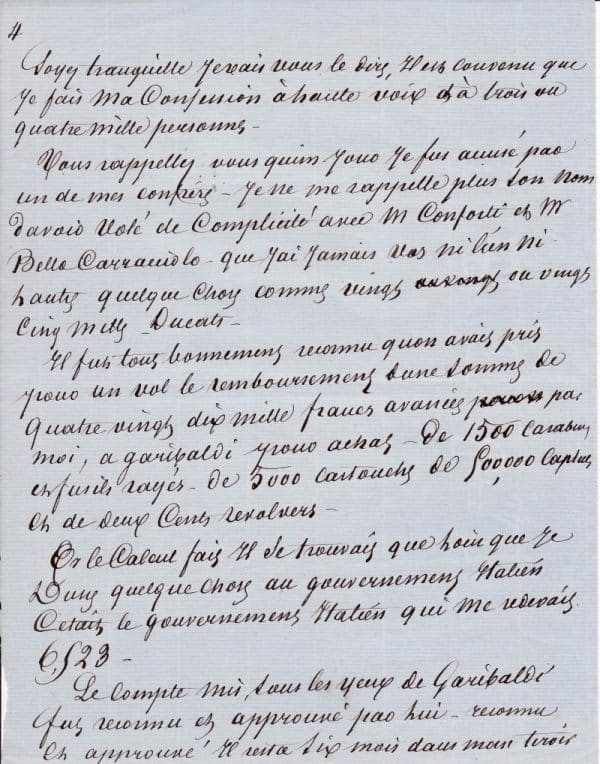 4
Soyez tranquille Je vais vous le dire, Il est convenu que
Je fais Ma Confession à haute voix et à trois ou
quatre mille personnes –
Vous rappellez vous qu'un jour Je fus accusé par
un de mes confrères – Je ne me rappelle plus son nom
d'avoir volé de Complicité avec M Conforti et Mr
Bello Carracciolo – que J'ai Jamais vus ni l'un ni
l'autre quelque chose comme vingt ou vingt
Cinq mille Ducats –
Il fut tout bonnement reconnu quon avait pris
pour un vol le remboursement dune somme de
quatre vingt dix mille francs avancés par
moi, a garibaldi pour achat – de 1500 Carabines
et fusils rayés – de 5000 cartouches de 500,000 Capsules
et de deux Cents revolvers –
Or le Calcul fait Il Se trouvait que loin que Je
Dusse quelque chose au gouvernement Italien
C'etait le gouvernement Italien qui me redevait
6,523 –
Le compte mis, sous les yeux de Garibaldi
fut reconnu et approuvé par lui – reconnu
et approuvé Il resta Six mois dans mon tiroir